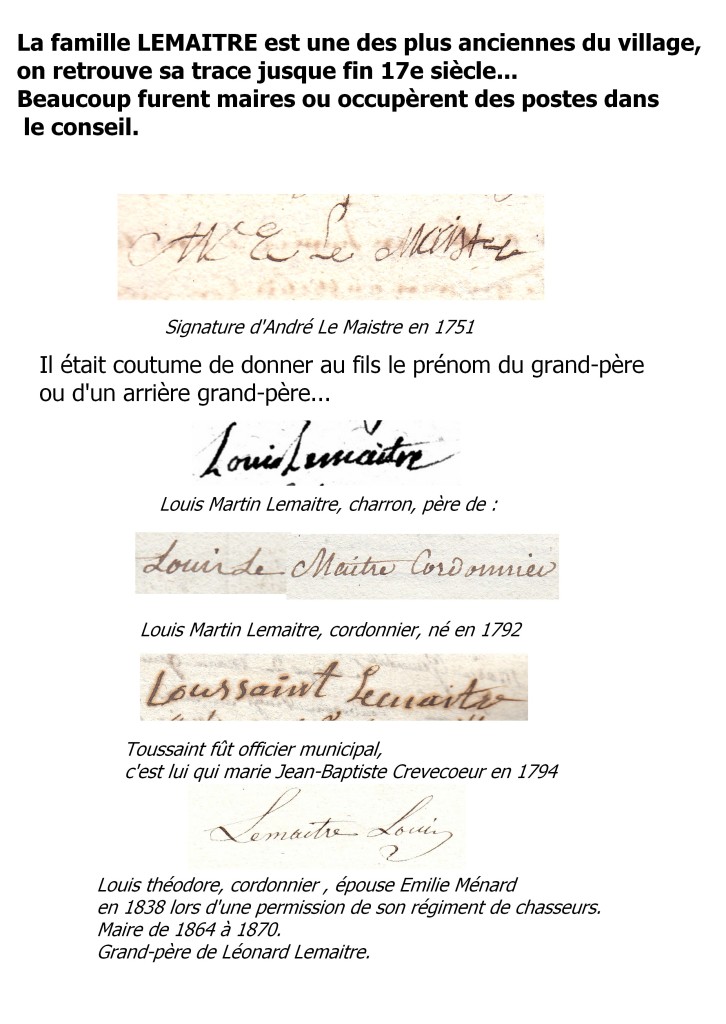 La famille LEMAITRE est une des plus anciennes du village,
on retrouve sa trace jusque fin 17e siècle...
Beaucoup furent maires ou occupèrent des postes dans
le conseil.
Le Maistre
Signature d'André Le Maistre en 1751
Il était coutume de donner au fils le prénom du grand-père
ou d'un arrière grand-père...
Louis Lemaitre
Louis Martin Lemaitre, charron, père de :
Louis Le Maitre Cordonnier
Louis Martin Lemaitre, cordonnier, né en 1792
Toussaint Lemaitre
Toussaint fût officier municipal,
c'est lui qui marie Jean-Baptiste Crevecoeur en 1794
Lemaitre Louis
Louis théodore, cordonnier , épouse Emilie Ménard
en 1838 lors d'une permission de son régiment de chasseurs.
Maire de 1864 à 1870.
Grand-père de Léonard Lemaitre.